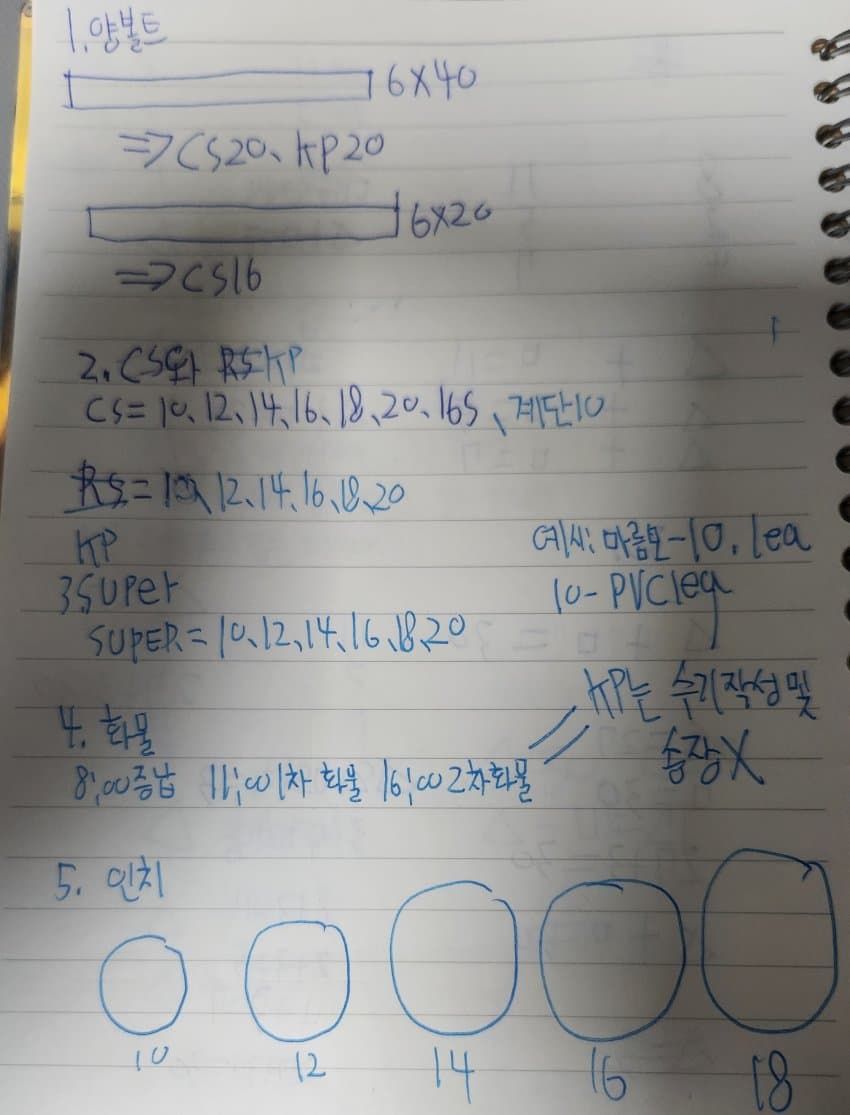 1. 양볼트
6X40
⇒ CS20、KP20
6X20
⇒ CS16
2. CS와 RS KP
CS = 10、12、14、16、18、20、16S、계단10
RS = 10、12、14、16、18、20
KP
예시: 마름모-10. 1ea
3 SUPer
10- PVC1ea
SUPER = 10、12、14、16、18、20
KP는 수기작성 및
송장X
4. 화물
8;00 증납 11;00 1차 화물 16;00 2차 화물
5. 인치
10 12 14 16 18